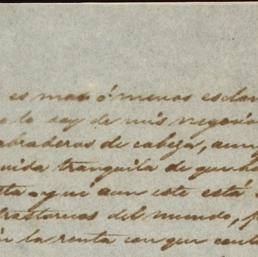 es mas ó menos esclav
lo soy de mis negocio
ebraderos de cabeza, aun
vida tranquila de que ha
qué aun este está
trastornos del mundo, p
la renta con que cont